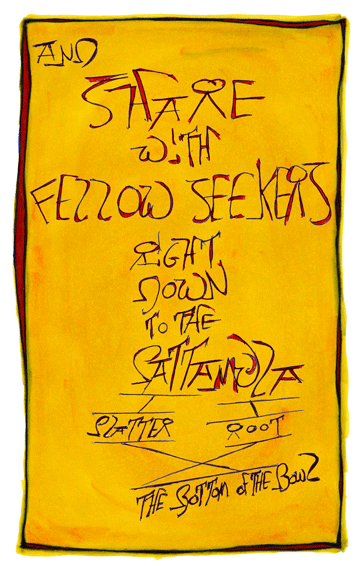 AND
SHARE
WITH
FELLOW SEEKERS
RIGHT
DOWN
TO THE
PLATTER ROOT
THE BOTTOM OF THE BOWL